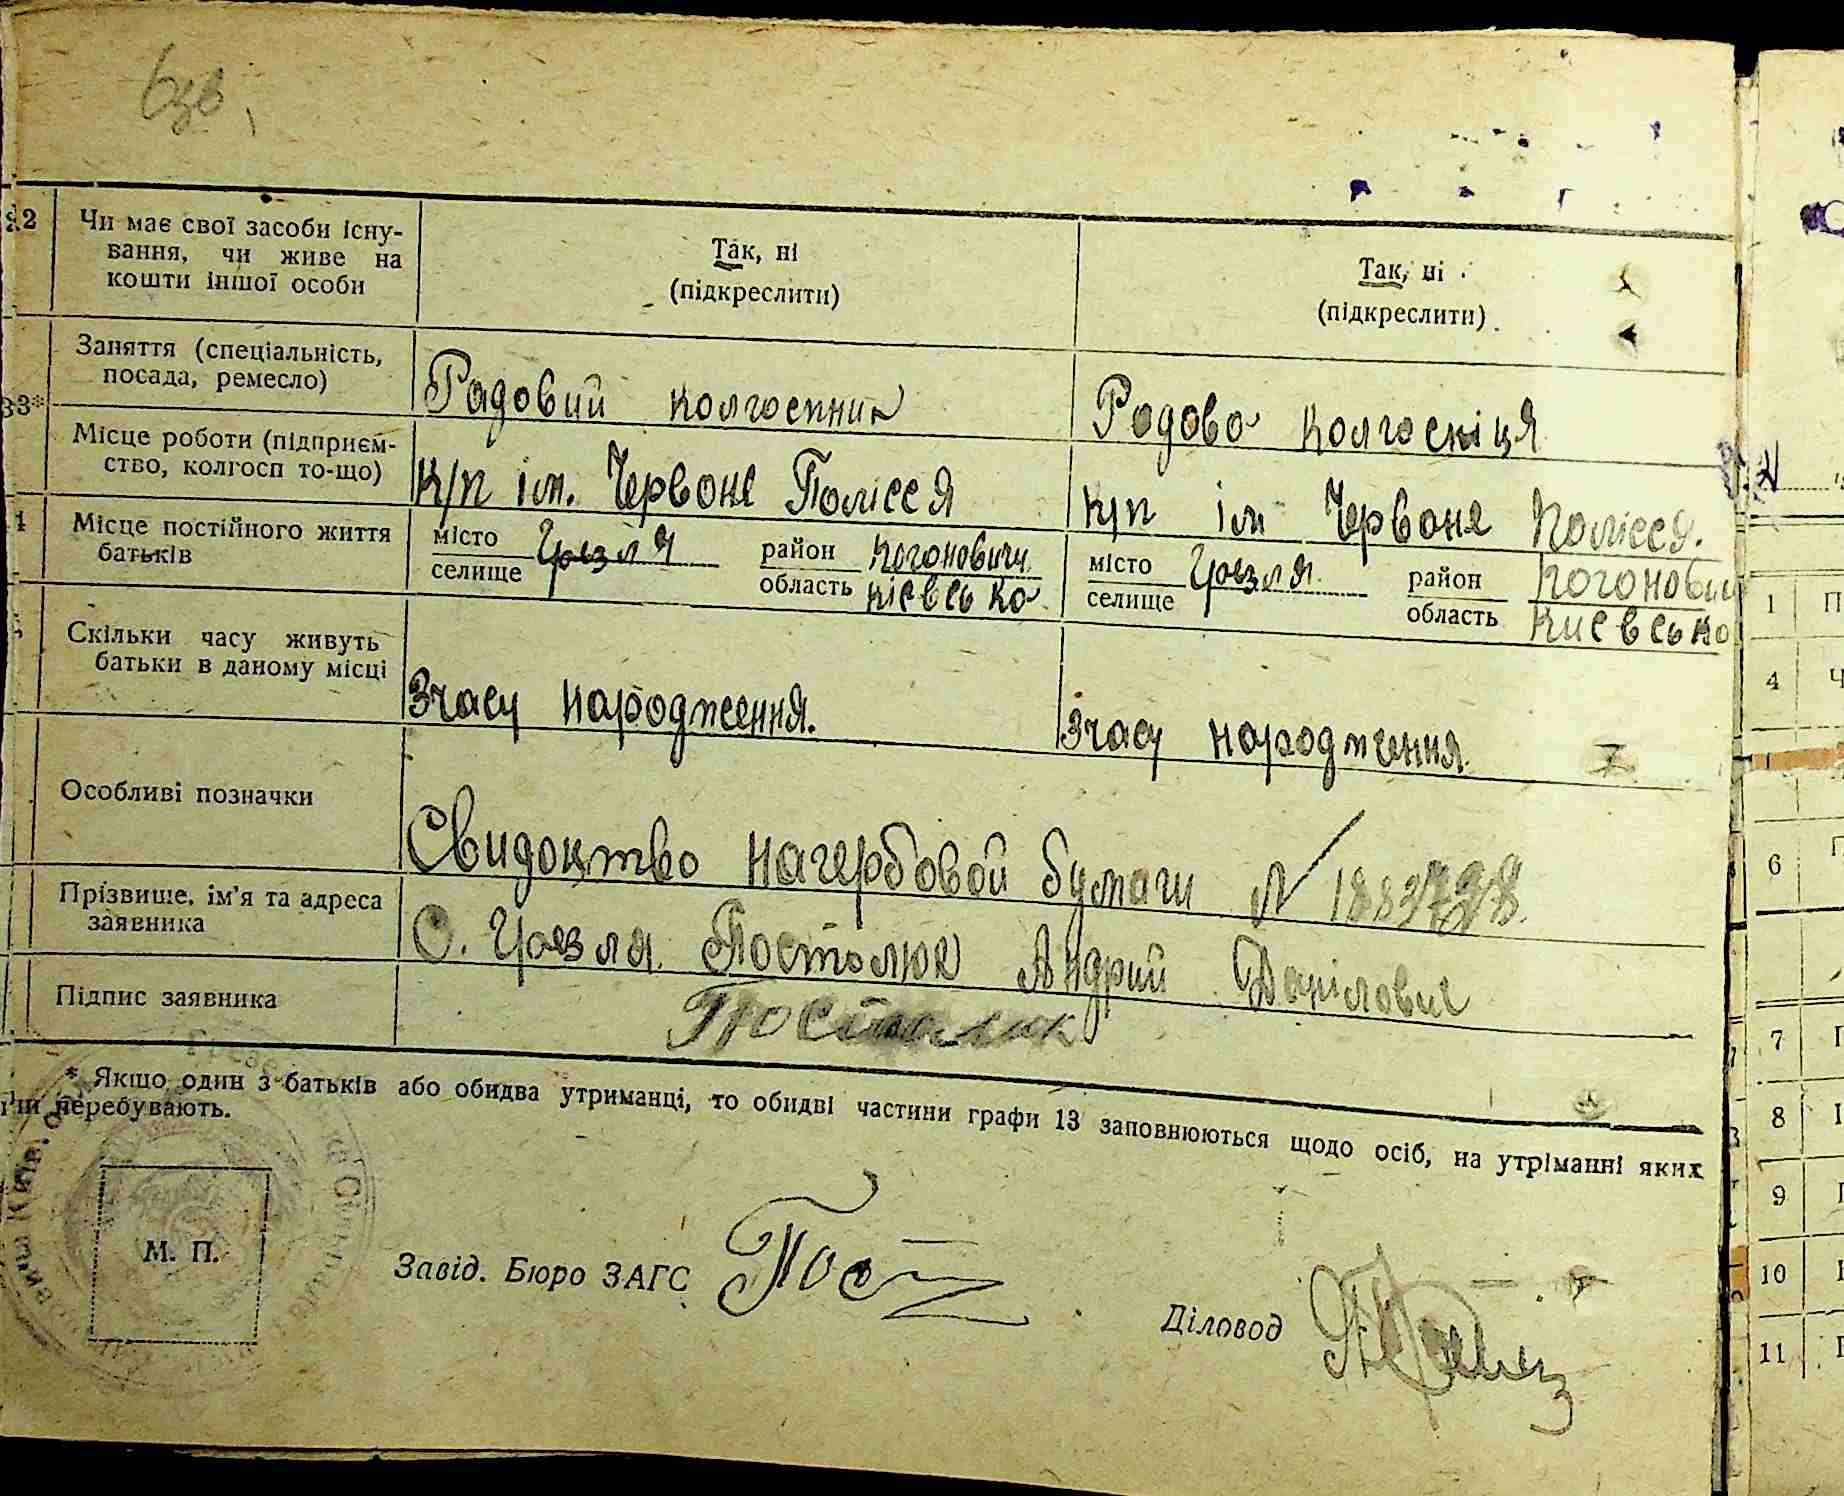 6зв.
12 Чи має свої засоби існу-
вання, чи живе на
кошти іншої особи
Так, ні
(підкреслити)
Так, ні
(підкреслити)
13*
Заняття (спеціальність,
посада, ремесло)
Радовий колгоспник
Родова колгоспіця
Місце роботи (підприєм-
ство, колгосп то-що)
К/п ім. Червоне Полісся
К/п ім Червоне Полісся.
Місце постійного життя
батьків
місто
селище
Грезля
район Когоновичи
область Кієвсько
місто
селище
Грезля
район Когонович
область Киевсько
Скільки часу живуть
батьки в даному місці
Зчасу народження.
Зчасу народження
Особливі позначки
Свидоцтво нагербовой бумаги N
Прізвище, ім'я та адреса
заявника
С. Грезля. Постолюк Андрий Данілович
Підпис заявника
Постолюк
* Якщо один з батьків або обидва утриманці, то обидві частини графи 13 заповнюються щодо осіб, на утріманні яких
перебувають.
М. П.
Завід. Бюро ЗАГС Пост
Діловод
1 П
4 Ч
6 П
7
8
9
10
11